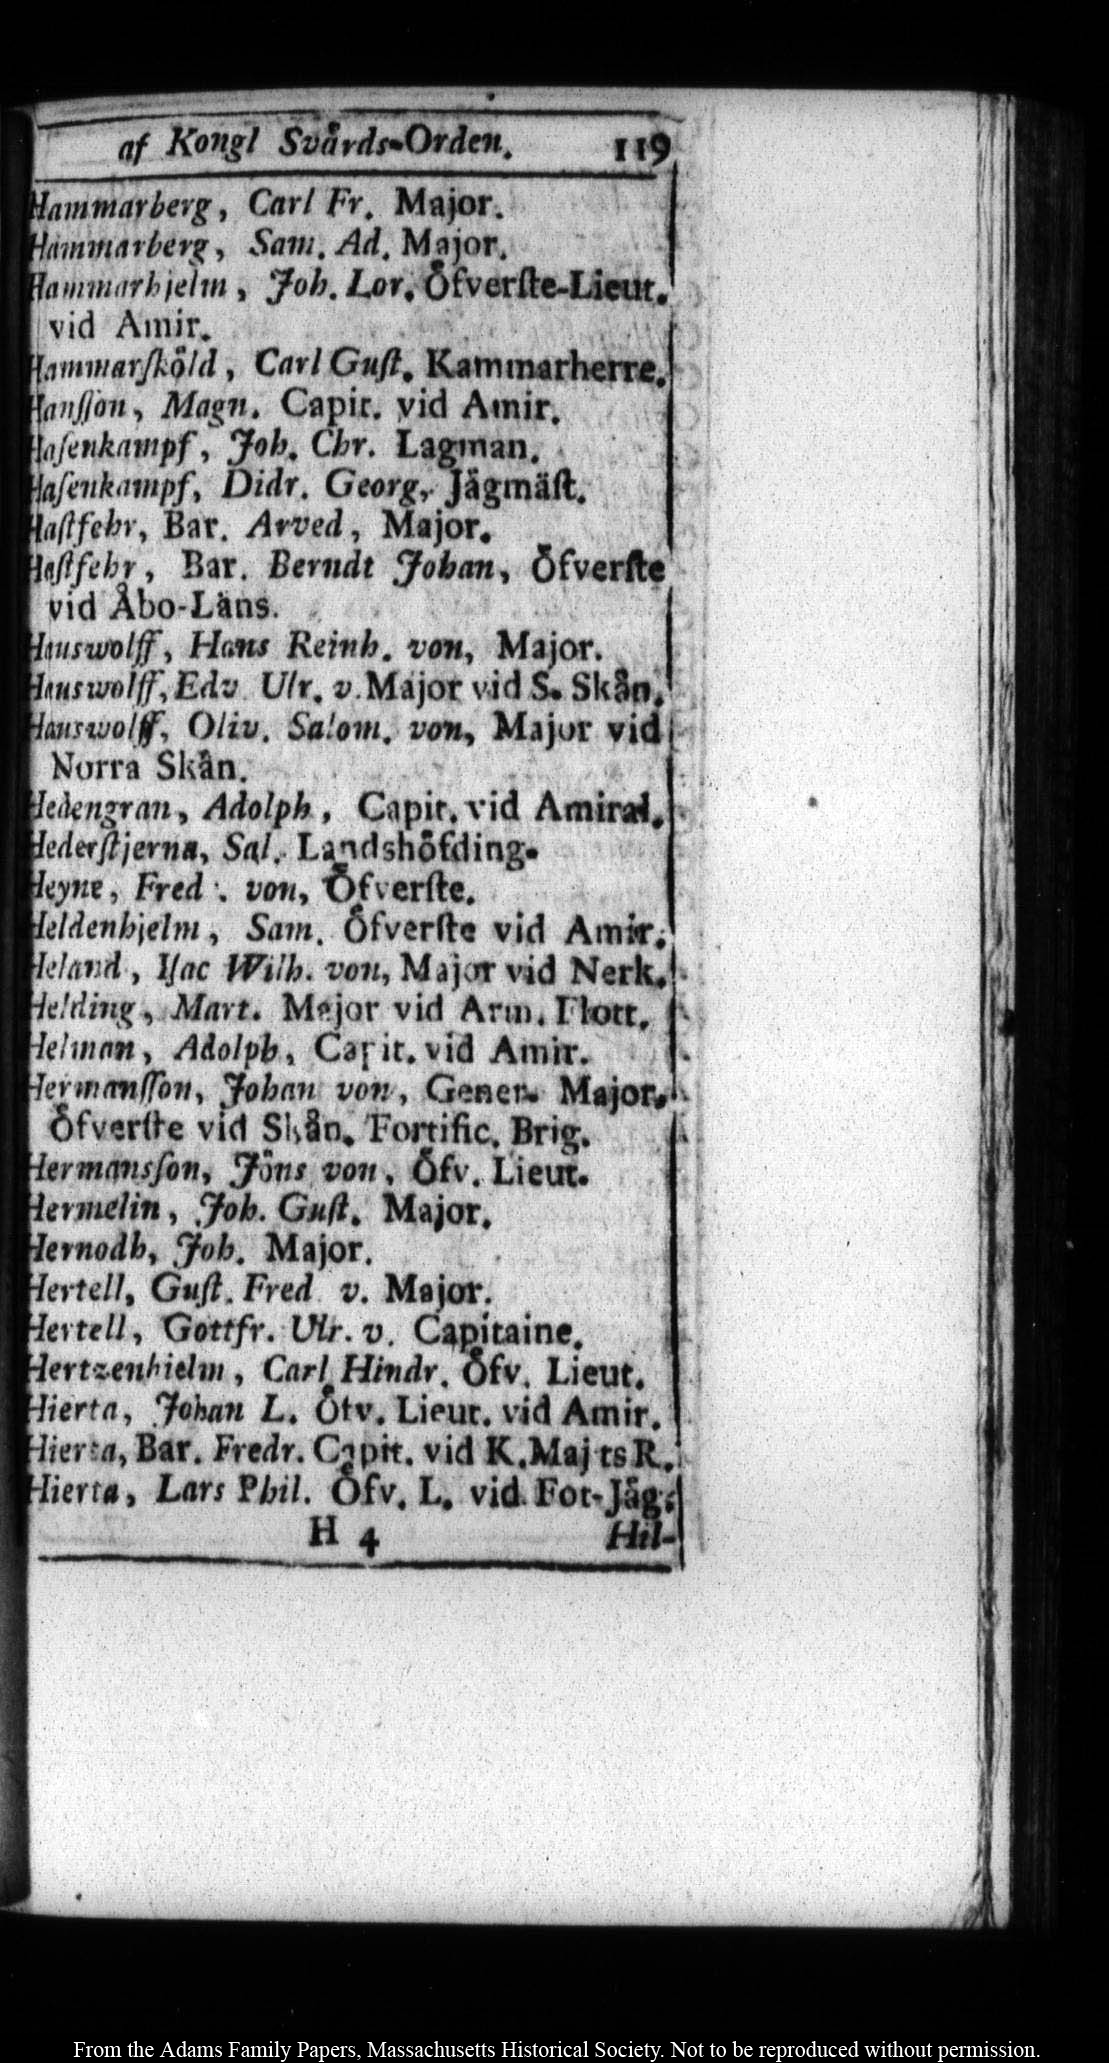 af Kongl Svårds-Orden. 119
Hammarberg, Carl Fr. Major.
Hammarberg, Sam. Ad. Major.
Hammarhjelm, Joh. Lor. Öfverſte-Lieut.
vid Amir.
Hammarſköld, Carl Guſt. Kammarherre.
Hanſſon, Magn. Capit. vid Amir.
Haſenkampf, Joh. Chr. Lagman.
Haſenkampf, Didr. Georg, Jägmäſt.
Haſtfehr, Bar. Arved, Major.
Haſtfehr, Bar. Berndt Johan, Öfverſte
vid Åbo-Läns.
Hauswolff, Hans Reinh. von, Major.
Hauswolff, Edv Ulr. v. Major vid S. Skån.
Hauswolff, Oliv. Salom. von, Major vid
Norra Skån.
Hedengran, Adolph, Capit. vid Amiral.
Hederſtjerna, Sal. Landshöfding.
Heyne, Fred. von, Öfverſte.
Heldenhjelm, Sam. Öfverſte vid Amir.
Heland, Iſac Wilh. von, Major vid Nerk.
Helding, Mart. Major vid Arm. Flott.
Helman, Adolph, Capit. vid Amir.
Hermanſſon, Johan von, Gener. Major.
Öfverſte vid Skån. Fortific. Brig.
Hermansſon, Jöns von, Öfv. Lieut.
Hermelin, Joh. Guſt. Major.
Hernodh, Joh. Major.
Hertell, Guſt. Fred v. Major.
Hertell, Gottfr. Ulr. v. Capitaine.
Hertzenhielm, Carl Hindr. Öfv. Lieut.
Hierta, Johan L. Öfv. Lieut. vid Amir.
Hierta, Bar. Fredr. Capit. vid K. Maj ts R.
Hierta, Lars Phil. Öfv. L. vid Fot-Jäg.
H 4 Hil-
From the Adams Family Papers, Massachusetts Historical Society. Not to be reproduced without permission.